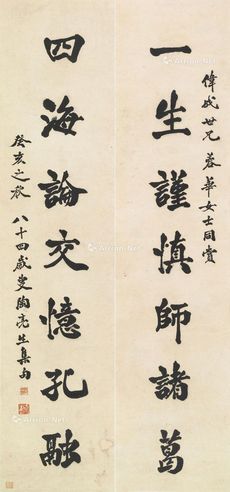 偉成世兄 蓉華女士同賞
一生謹慎師諸葛
四海論交憶孔融
癸亥之秋 八十四歲叟陶亮生集句